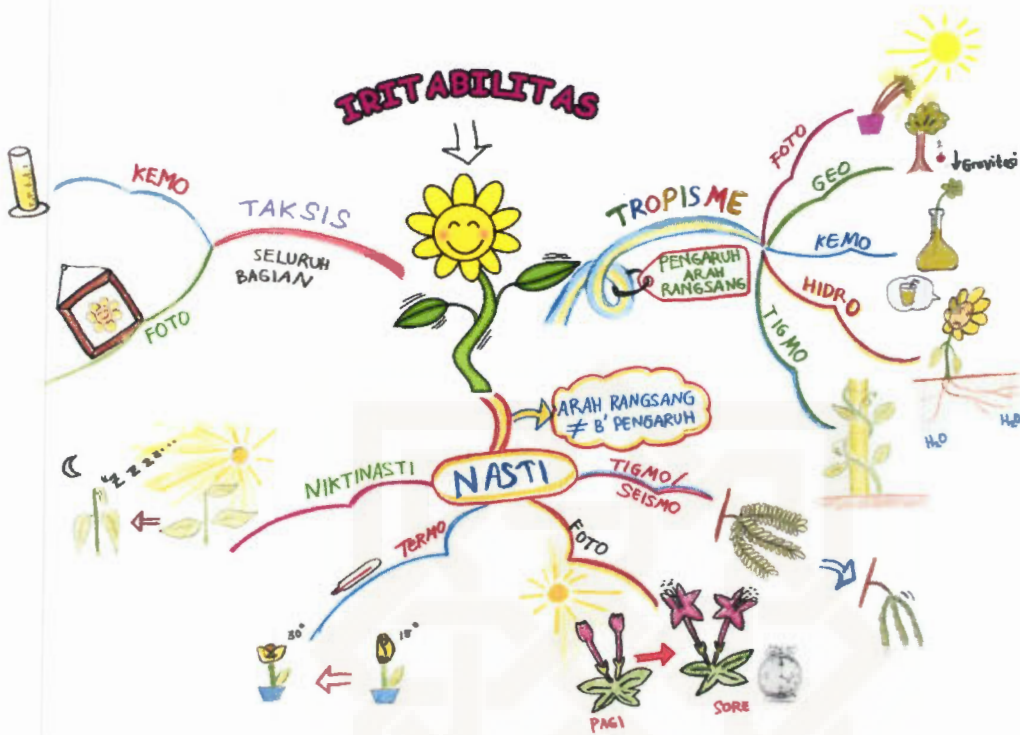 IRITABILITAS
TAKSIS
SELURUH
BAGIAN
KEMO
FOTO
TROPISME
PENGARUH
ARAH
RANGSANG
FOTO
GEO
↓Gravitasi
KEMO
HIDRO
H₂O
H₂O
TIGMO
ARAH RANGSANG
≠ B' PENGARUH
NASTI
NIKTINASTI
TERMO
30°
15°
FOTO
PAGI
SORE
TIGMO/
SEISMO